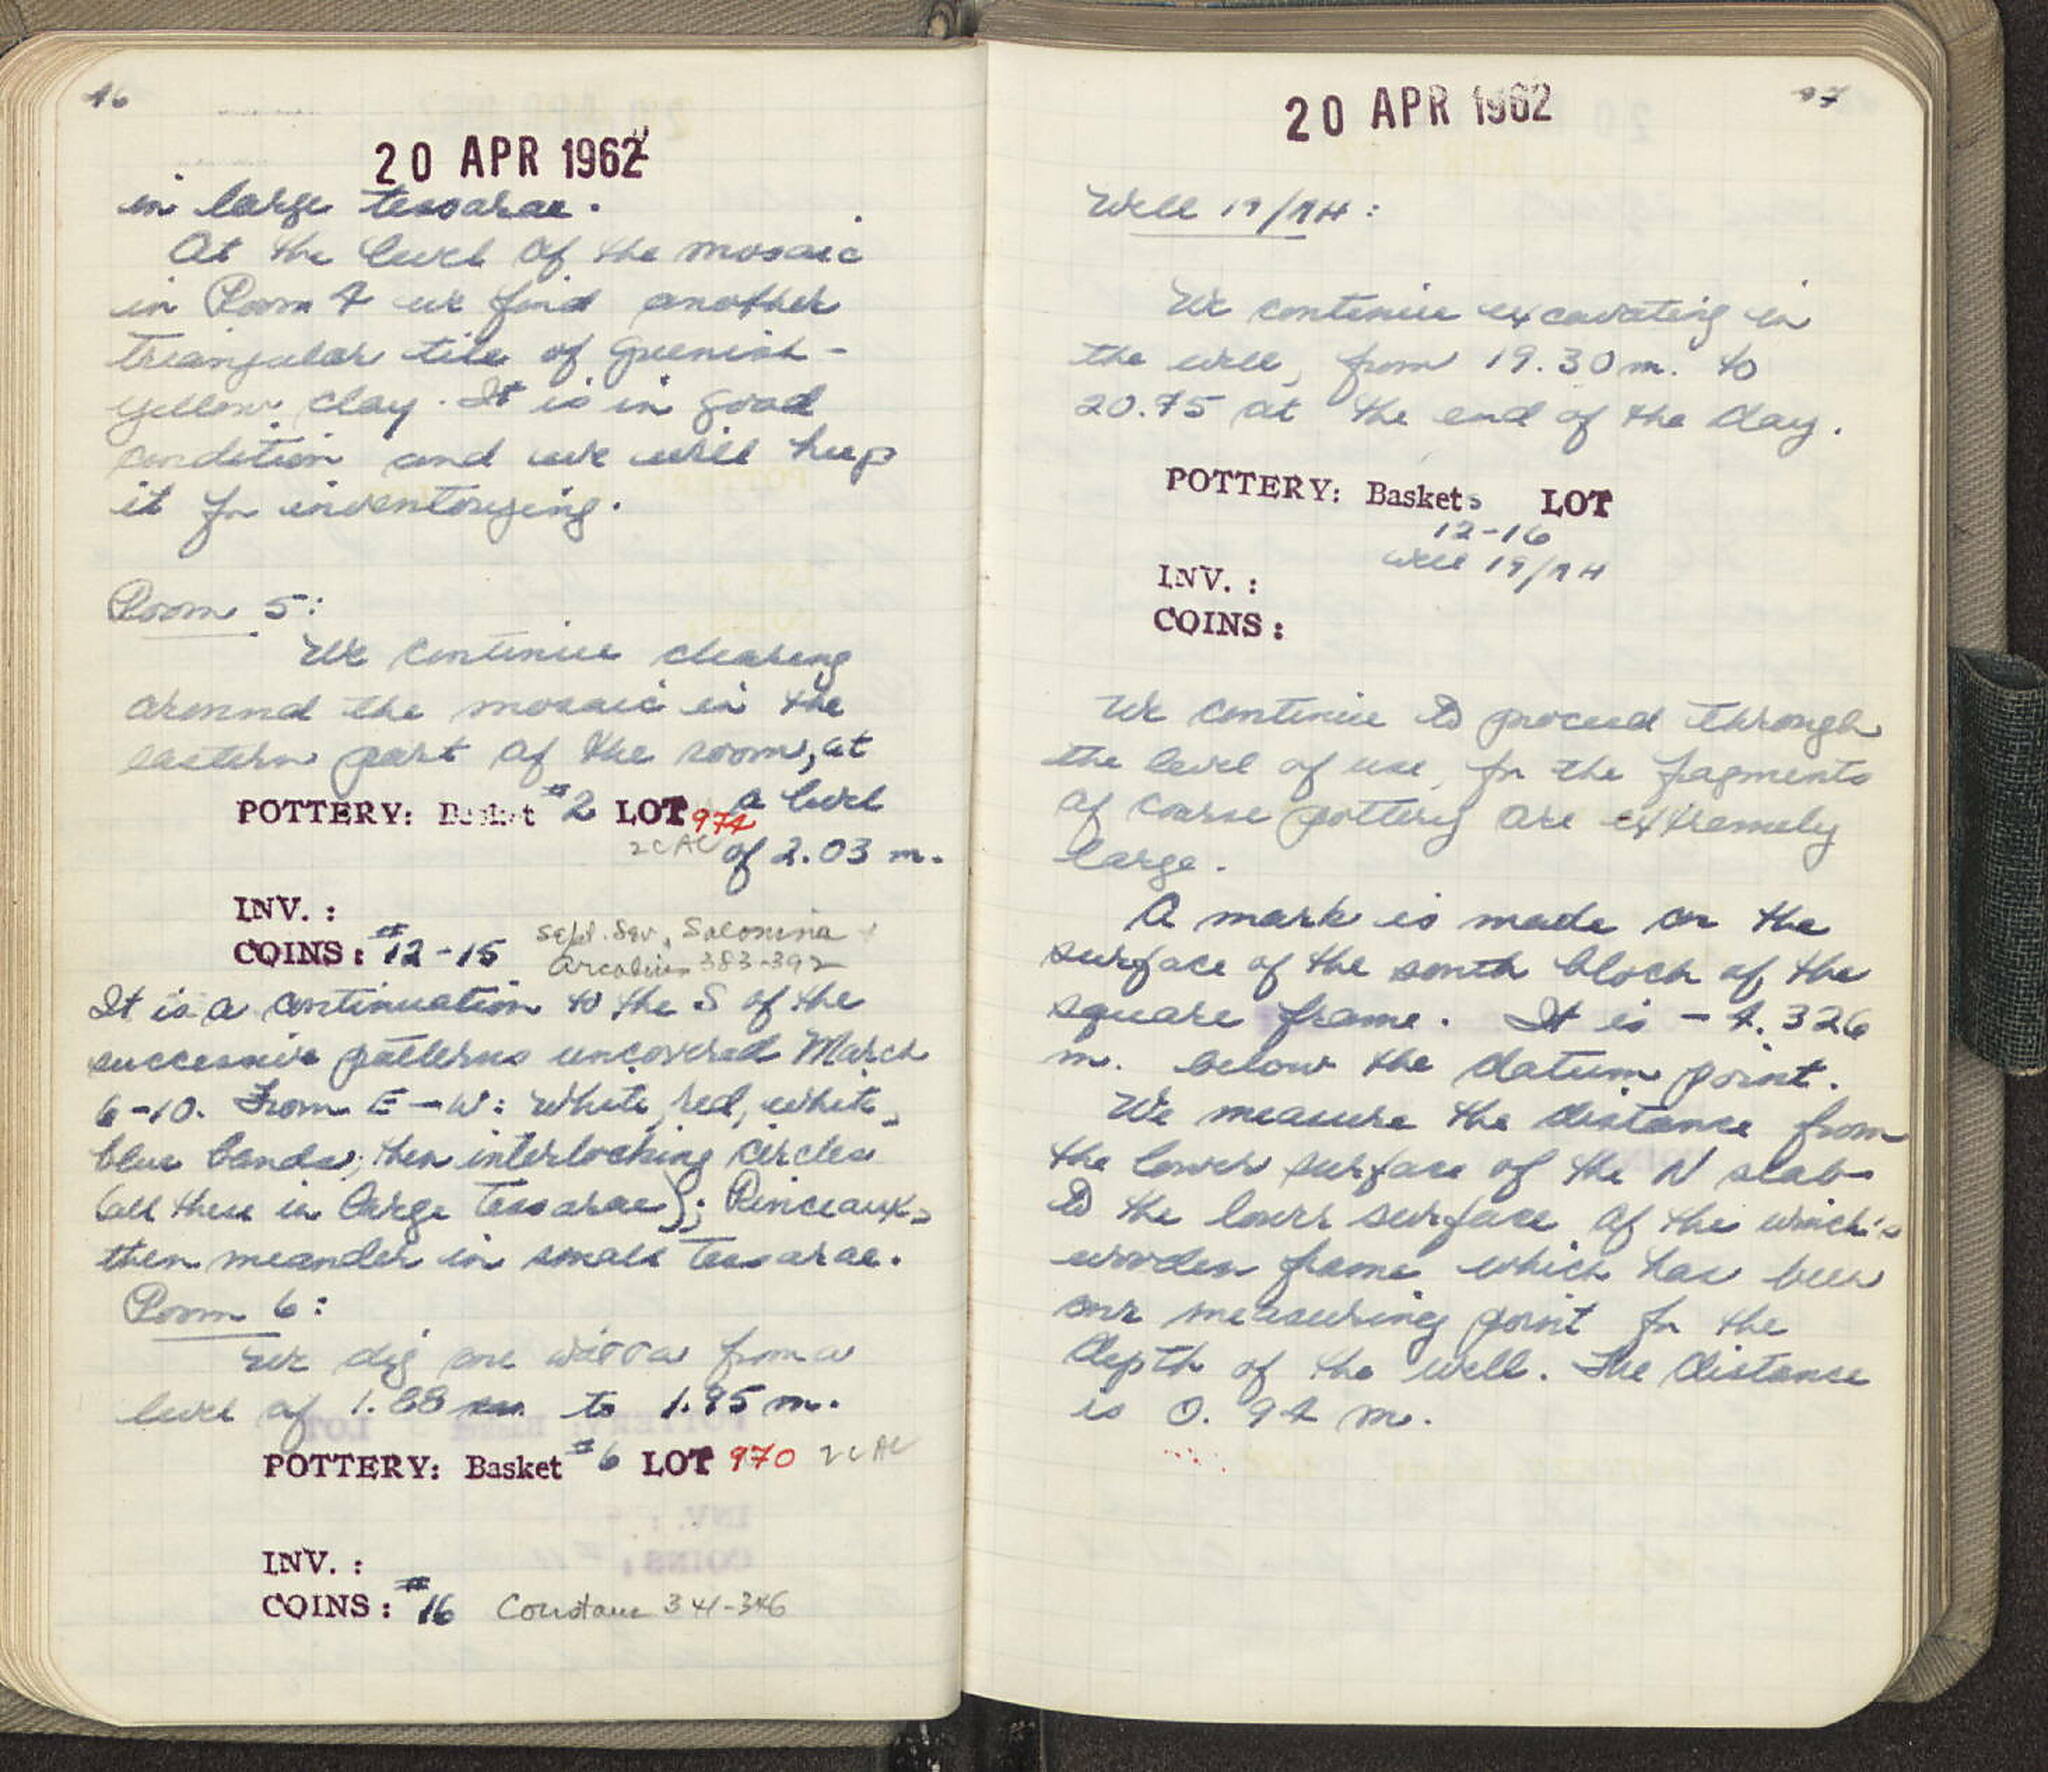 46
20 APR 1962
in large tessarae.
At the level of the mosaic
in Room 4 we find another
triangular tile of greenish-
yellow clay. It is in good
condition and we will keep
it for inventorying.
Room 5:
We continue clearing
around the mosaic in the
eastern part of the room, at
POTTERY: Basket #2 LOT 974 a level
2 C AC of 2.03 m.
INV. :
COINS: #12-15 Sept. Sev., Salonina
Arcadius 383-392
It is a continuation to the S of the
successive patterns uncovered March
6-10. From E-W: White, red, white,
blue bands; then interlocking circles
(all these in large tessarae); Rinceaux,
then meander in small tessarae.
Room 6:
We dig one from a
level of 1.88 m. to 1.95 m.
POTTERY: Basket #6 LOT 970 2 C AC
INV. :
COINS: #16 Constans 341-346
47
20 APR 1962
Well 19/
We continue excavating in
the well, from 19.30 m. to
20.75 at the end of the day.
POTTERY: Baskets LOT
12-16
Well 19/
INV. :
COINS:
We continue to proceed through
the level of use, for the fragments
of coarse pottery are extremely
large.
A mark is made on the
surface of the south block of the
square frame. It is -4.326
m. below the datum point.
We measure the distance from
the lower surface of the N slab
to the lower surface of the winch's
wooden frame which has been
our measuring point for the
depth of the well. The distance
is 0.94 m.